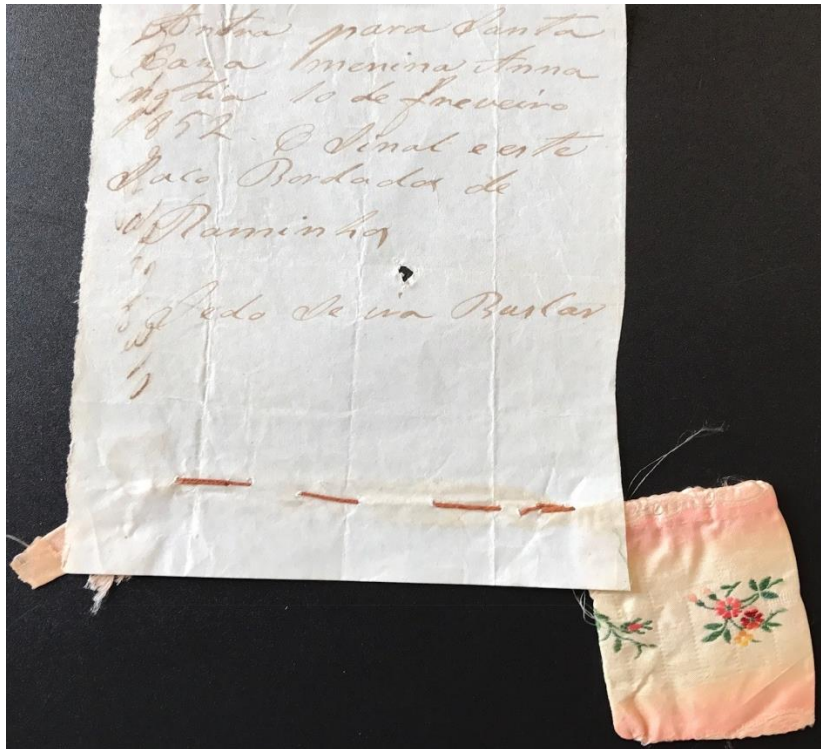 Entra para Santa
Caza menina Anna
no dia 10 de freveiro
1852. O Sinal e este
Saco Bordado de
Raminha
Pedo Se ira Buslar